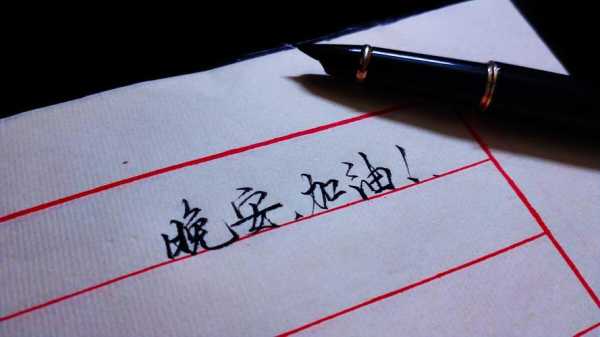 晚安、加油!